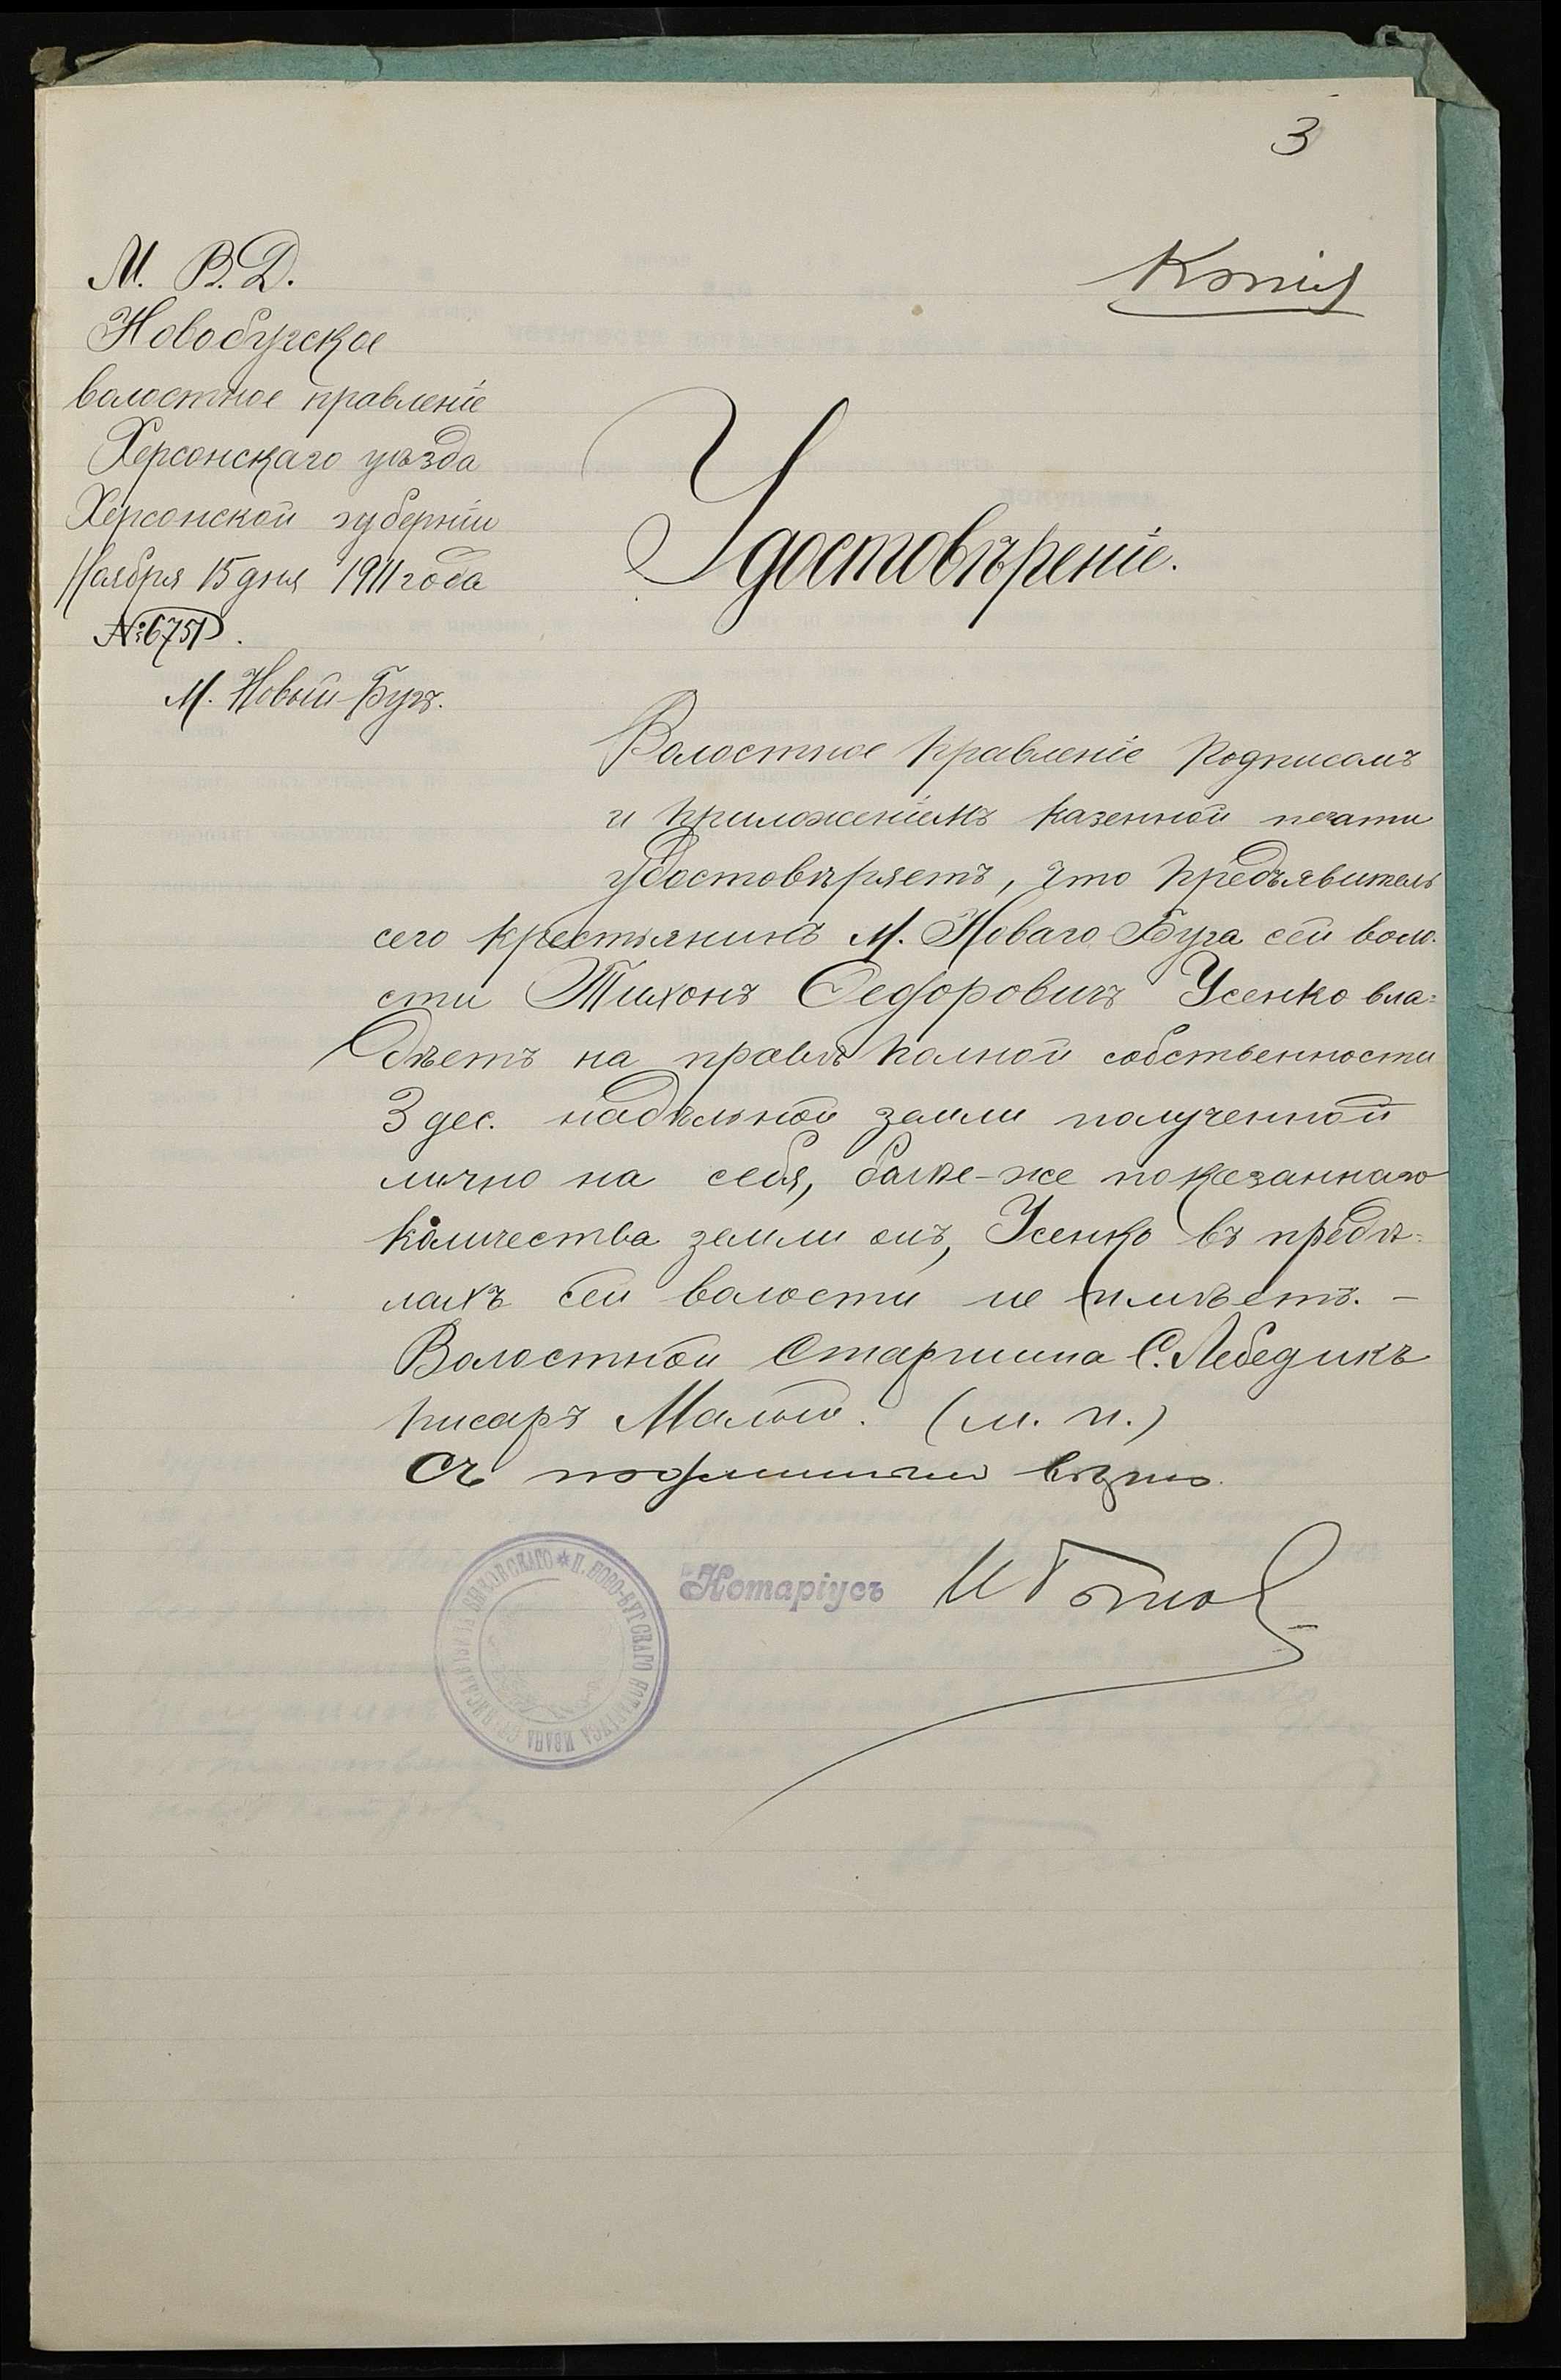 3
М. В. Д.
Новобугское
волостное правленіе
Херсонскаго уѣзда
Херсонской губерніи
Ноября 15 дня 1911 года
№ 6751
М. Новый-Бугъ.
Копія
Удостовѣреніе.
Волостное правленіе подписомъ
и приложеніемъ казенной печати
удостовѣряетъ, что предъявитель
сего крестьянинъ М. Новаго Буга сей воло-
сти Тихонъ Федоровичъ Усенко вла=
дѣетъ на правѣ полной собственности
3 дес. надѣльной земли полученной
лично на себя, болѣе-же показаннаго
количества земли онъ, Усенко въ предѣ-
лахъ сей волости не имѣетъ. –
Волостной Старшина С. Лебедикъ
писарь Малый. (м. п.)
Съ подлиннымъ вѣрно.
Нотаріусъ
Н. НОВО-БУГСКАГО НОТАРІУСА ИВАНА